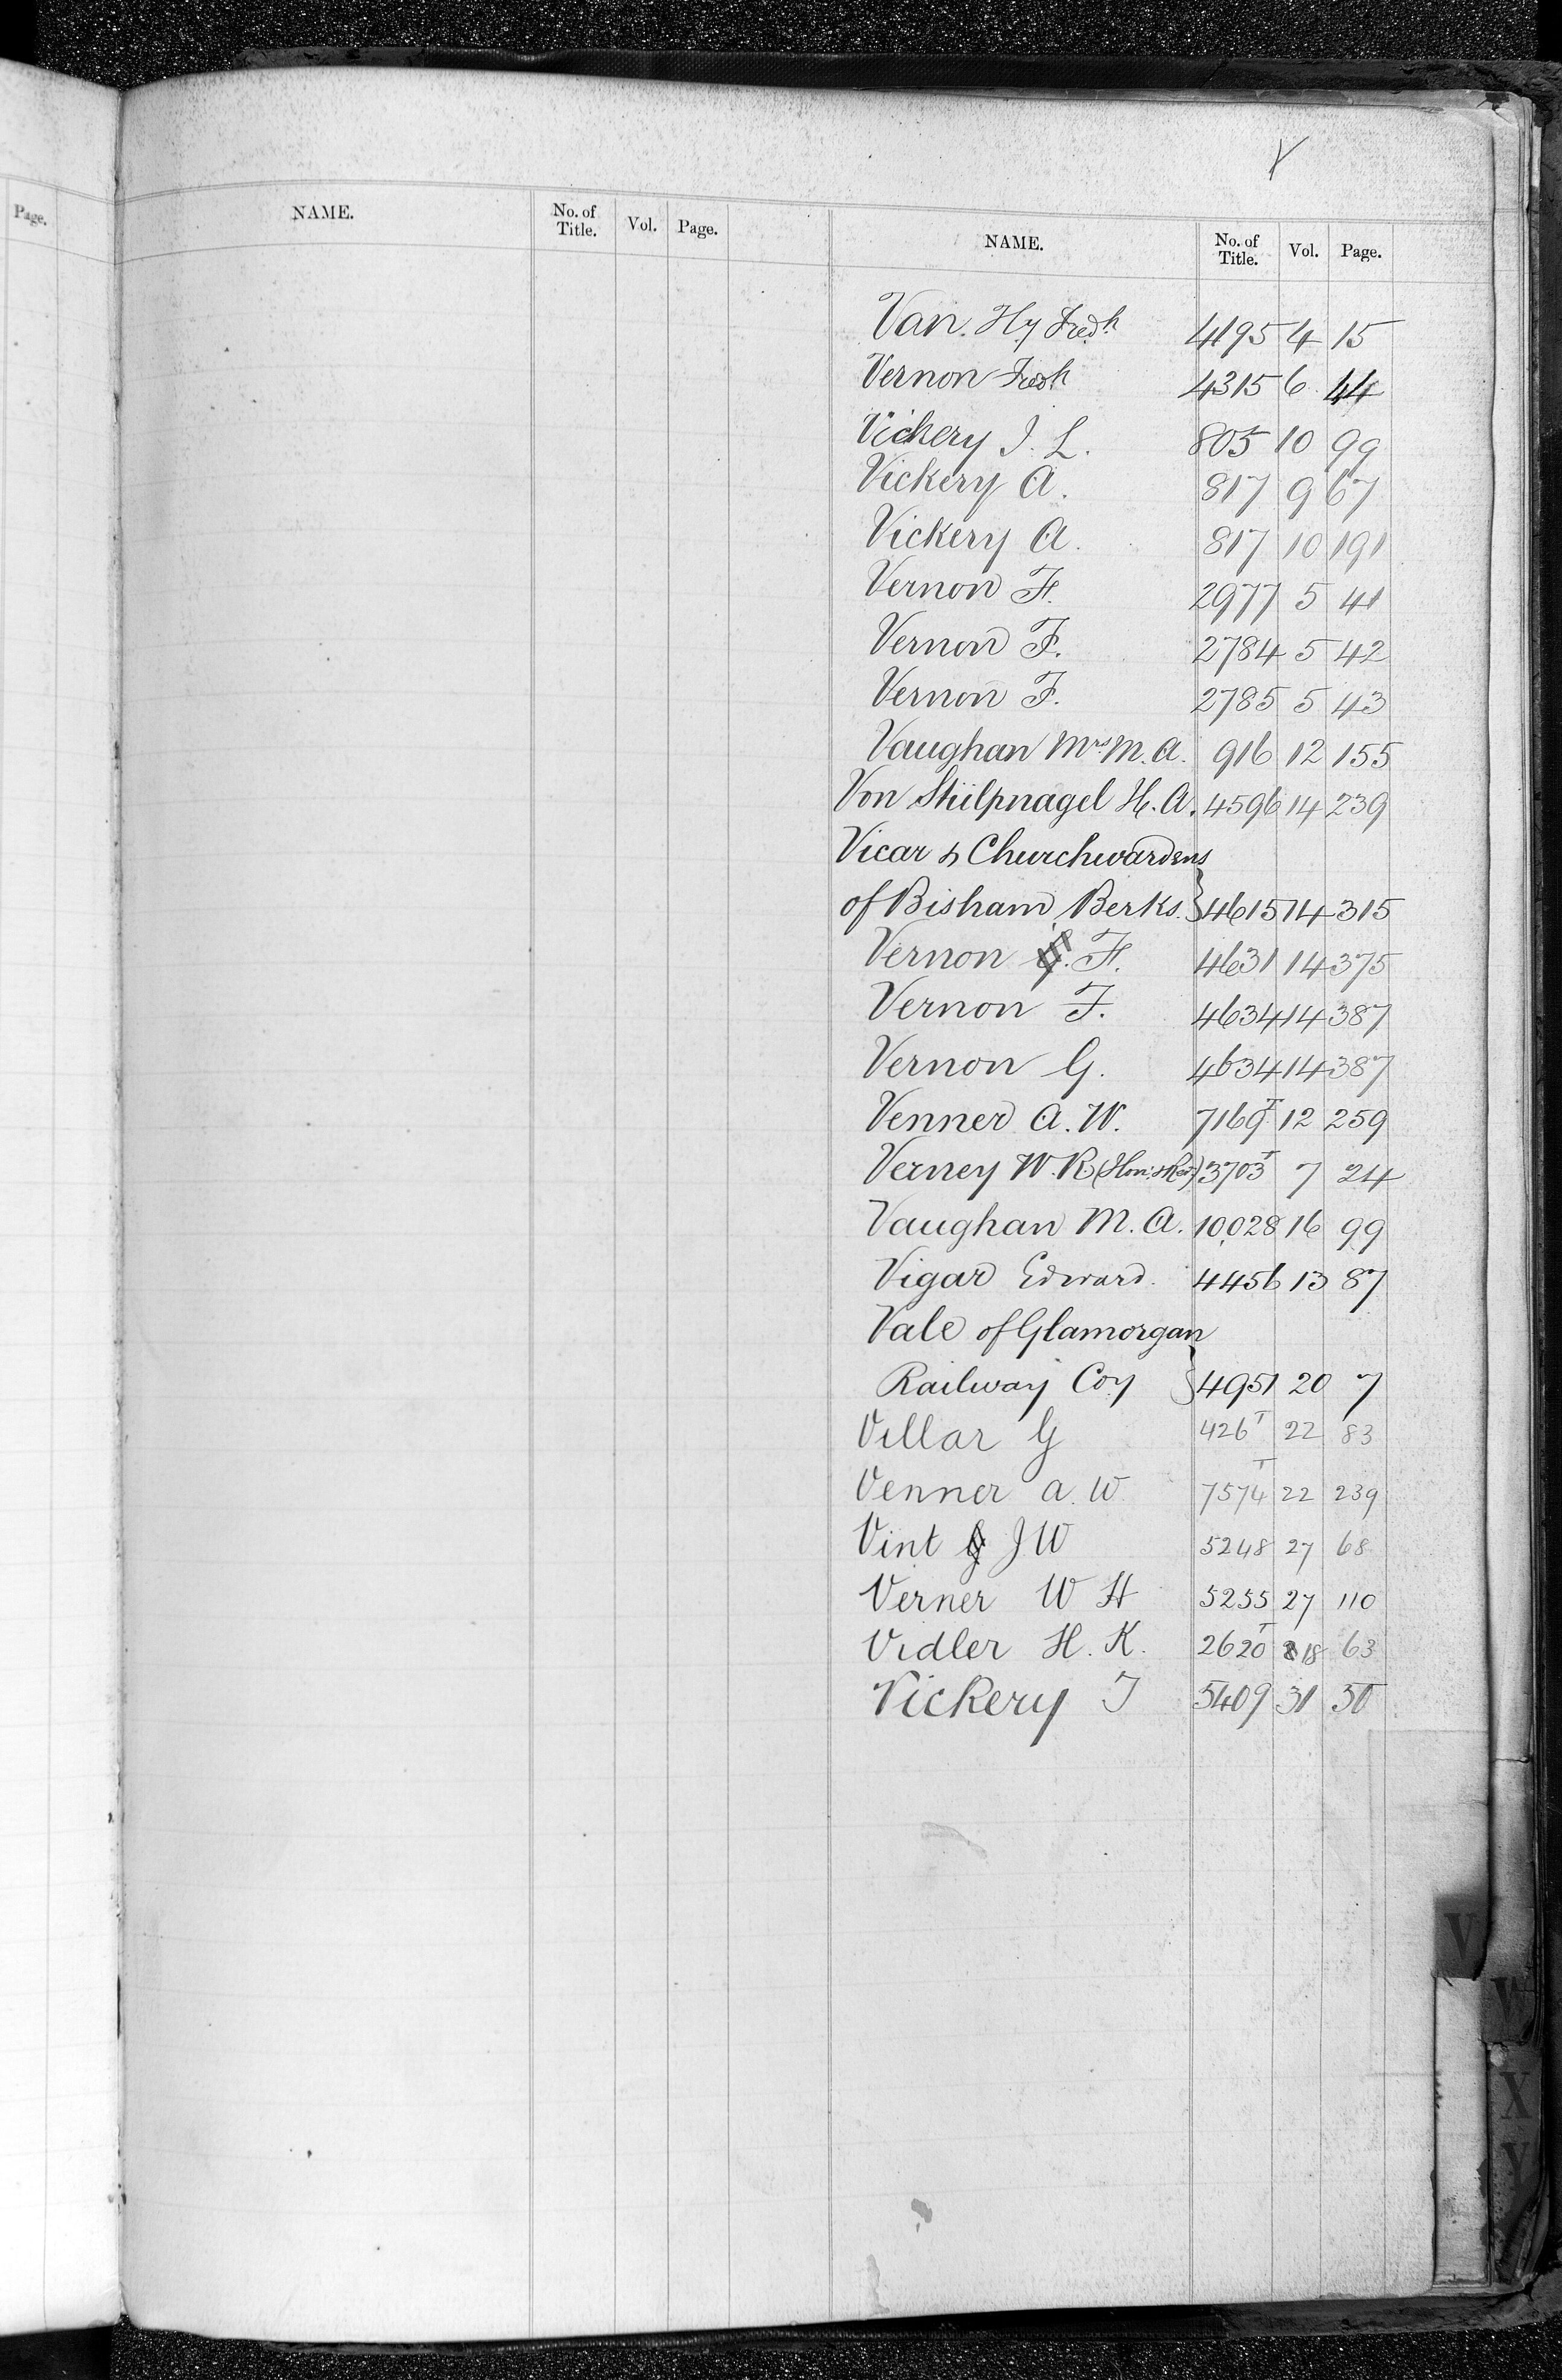 Page.
NAME. No. of Title. Vol. Page. NAME. No. of Title. Vol. Page.
Van. Hy Fredk 4195 4 15
Vernon Fredk 4315 6 44
Vickery J. L. 805 10 99
Vickery A. 817 9 67
Vickery A. 817 10 191
Vernon F. 2977 5 41
Vernon F. 2784 5 42
Vernon F. 2785 5 43
Vaughan Mrs M. A. 916 12 155
Von Stülpnagel H. A. 4596 14 239
Vicar & Churchwardens
of Bisham, Berks. } 4615 14 315
Vernon F. 4631 14 375
Vernon F. 4634 14 387
Vernon G. 4634 14 387
Venner A. W. 7169 T 12 259
Verney W. R (Hon: & Rev:) 3703 T 7 24
Vaughan M. A. 10,028 16 99
Vigar Edward. 4456 13 87
Vale of Glamorgan
Railway Coy } 4951 20 7
Villar G 426 T 22 83
Venner A. W 7574 T 22 239
Vint J W 5248 27 68
Verner W H 5255 27 110
Vidler H. K. 2620 T 18 63
Vickery J 5409 31 50
V
V
X
Y